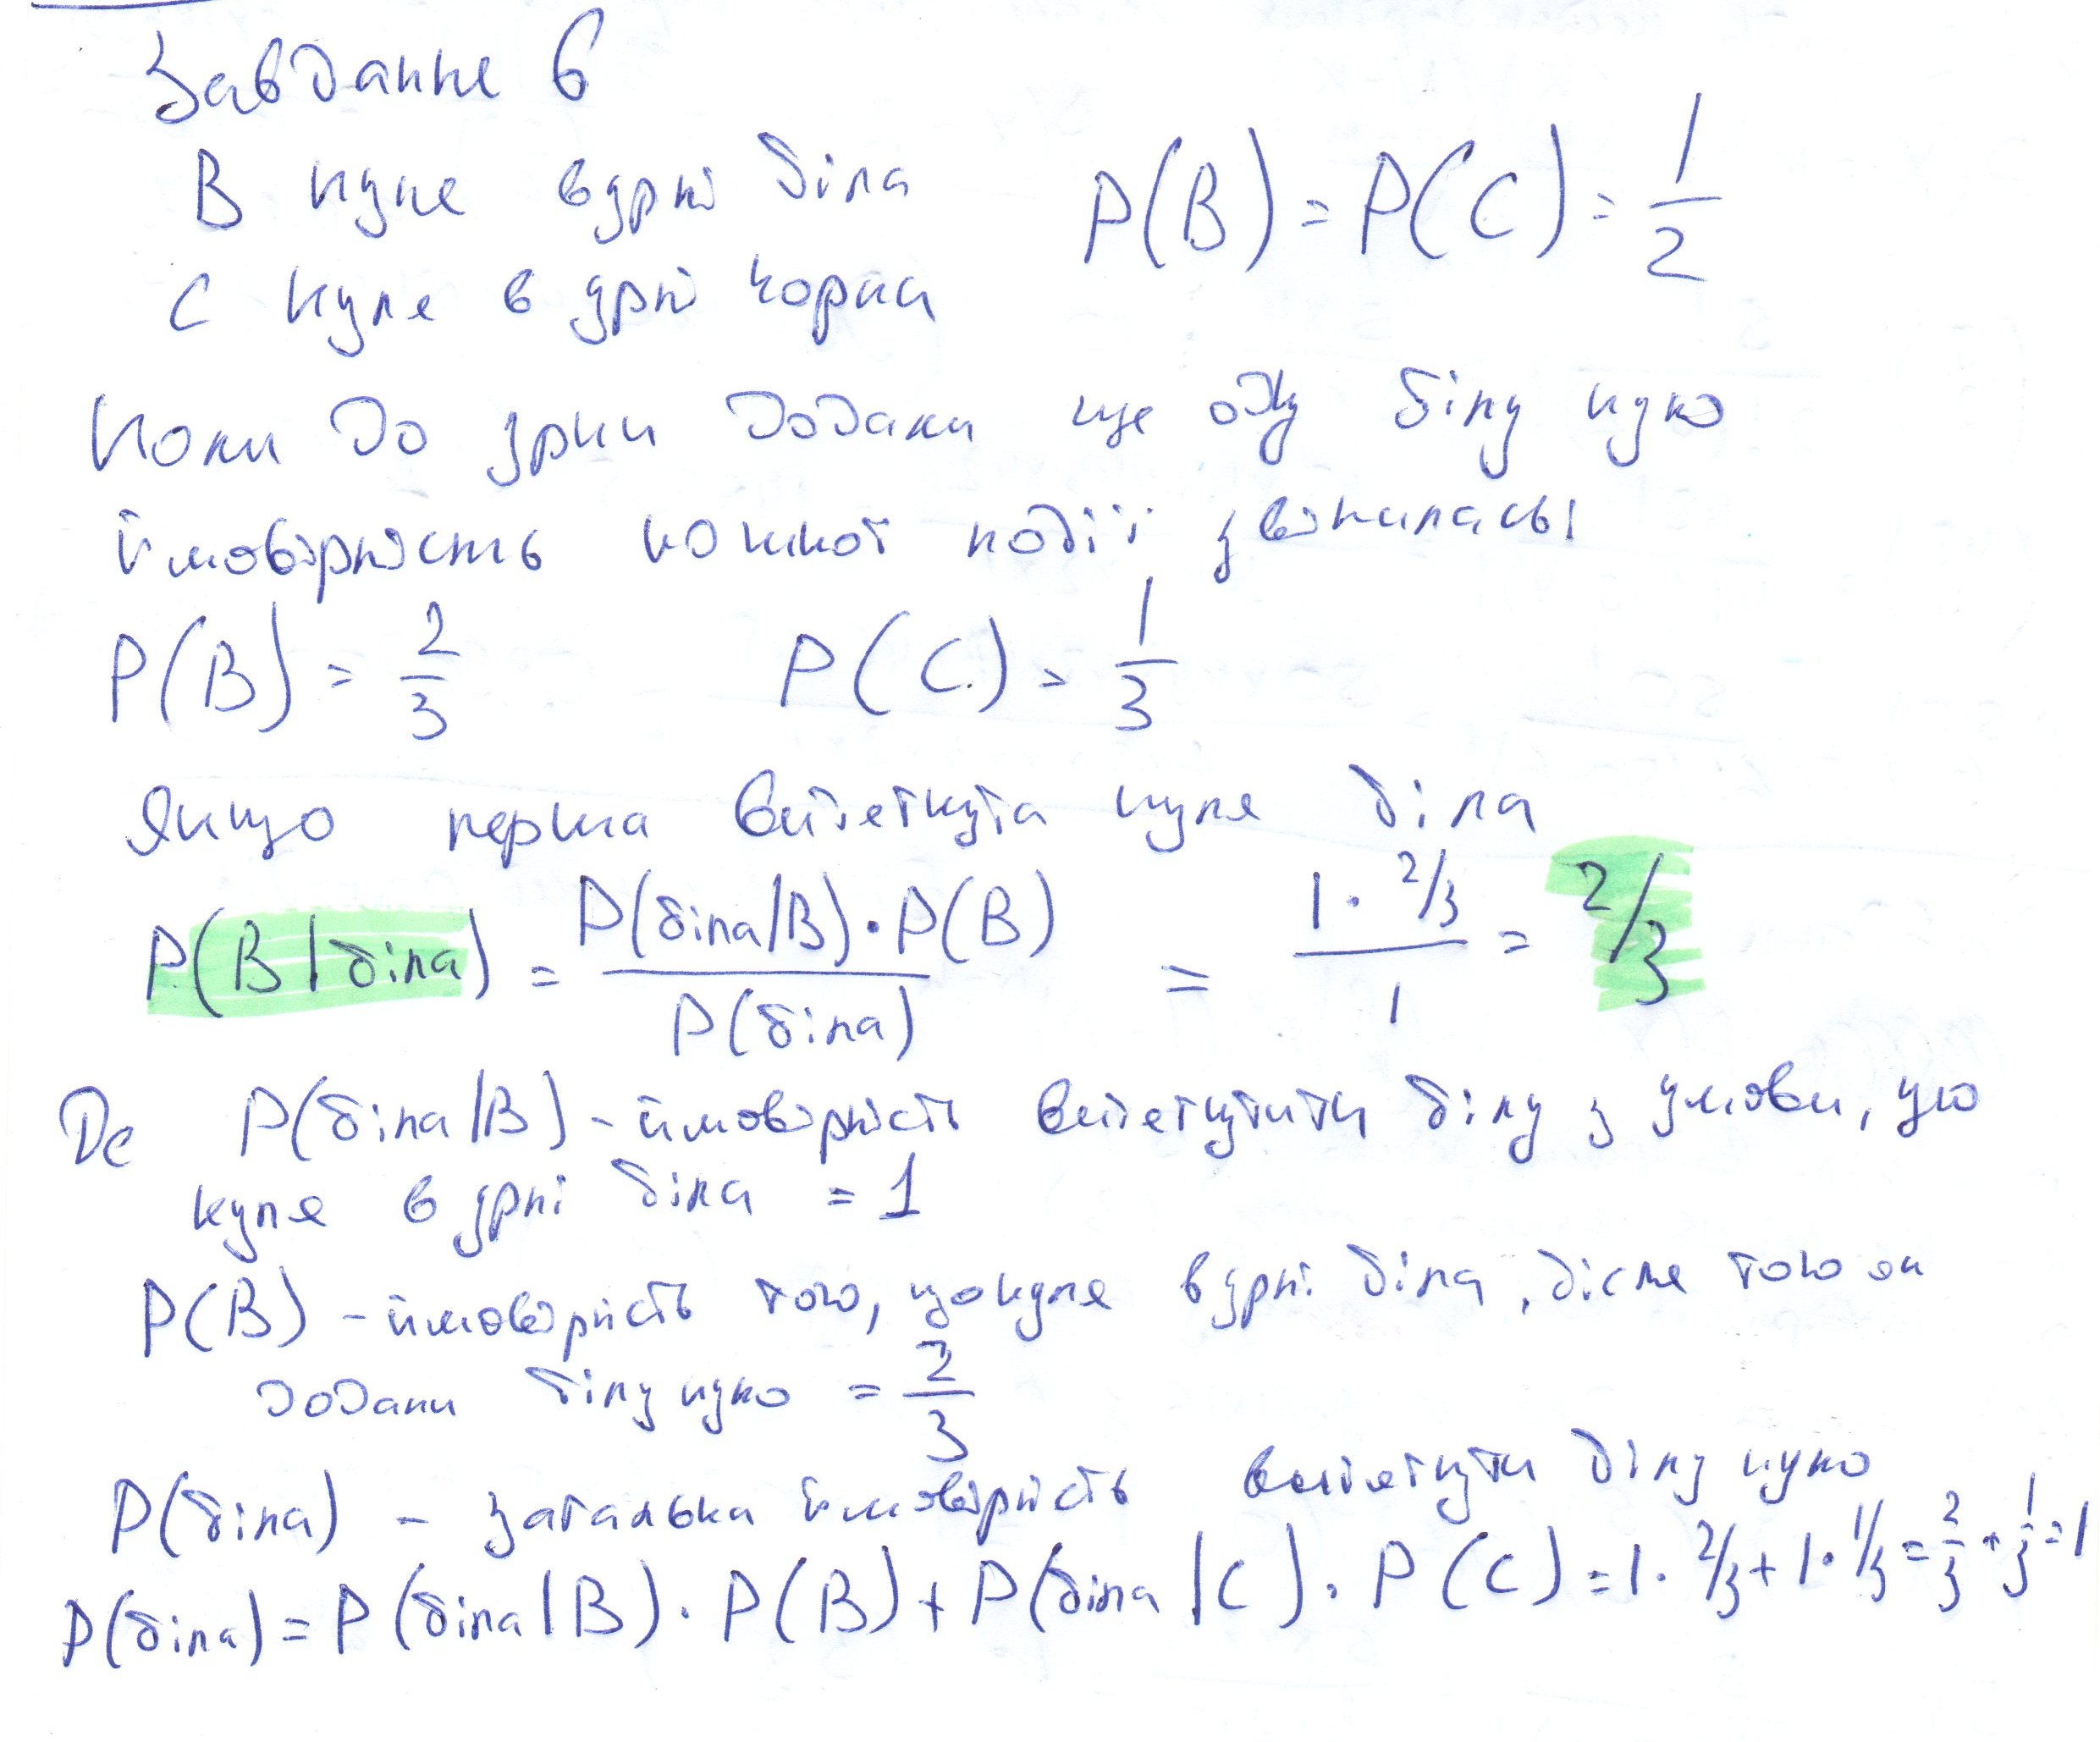 Завдання 6
В куля в урні біла P(B) = P(C) = 1/2
С куля в урні чорна
Коли до урни додали ще одну білу кулю
ймовірність кожної події змінилась
P(B) = 2/3 P(C) = 1/3
Якщо перша витягнута куля біла
P(B|біла) = P(біла|B)·P(B) / P(біла) = 1·2/3 / 1 = 2/3
Де P(біла|B) - ймовірність витягнути білу з умови, що
куля в урні біла = 1
P(B) - ймовірність того, що куля в урні біла, після того як
додали білу кулю = 2/3
P(біла) - загальна ймовірність витягнути білу кулю
P(біла) = P(біла|B)·P(B) + P(біла|C)·P(C) = 1·2/3 + 1·1/3 = 2/3 + 1/3 = 1